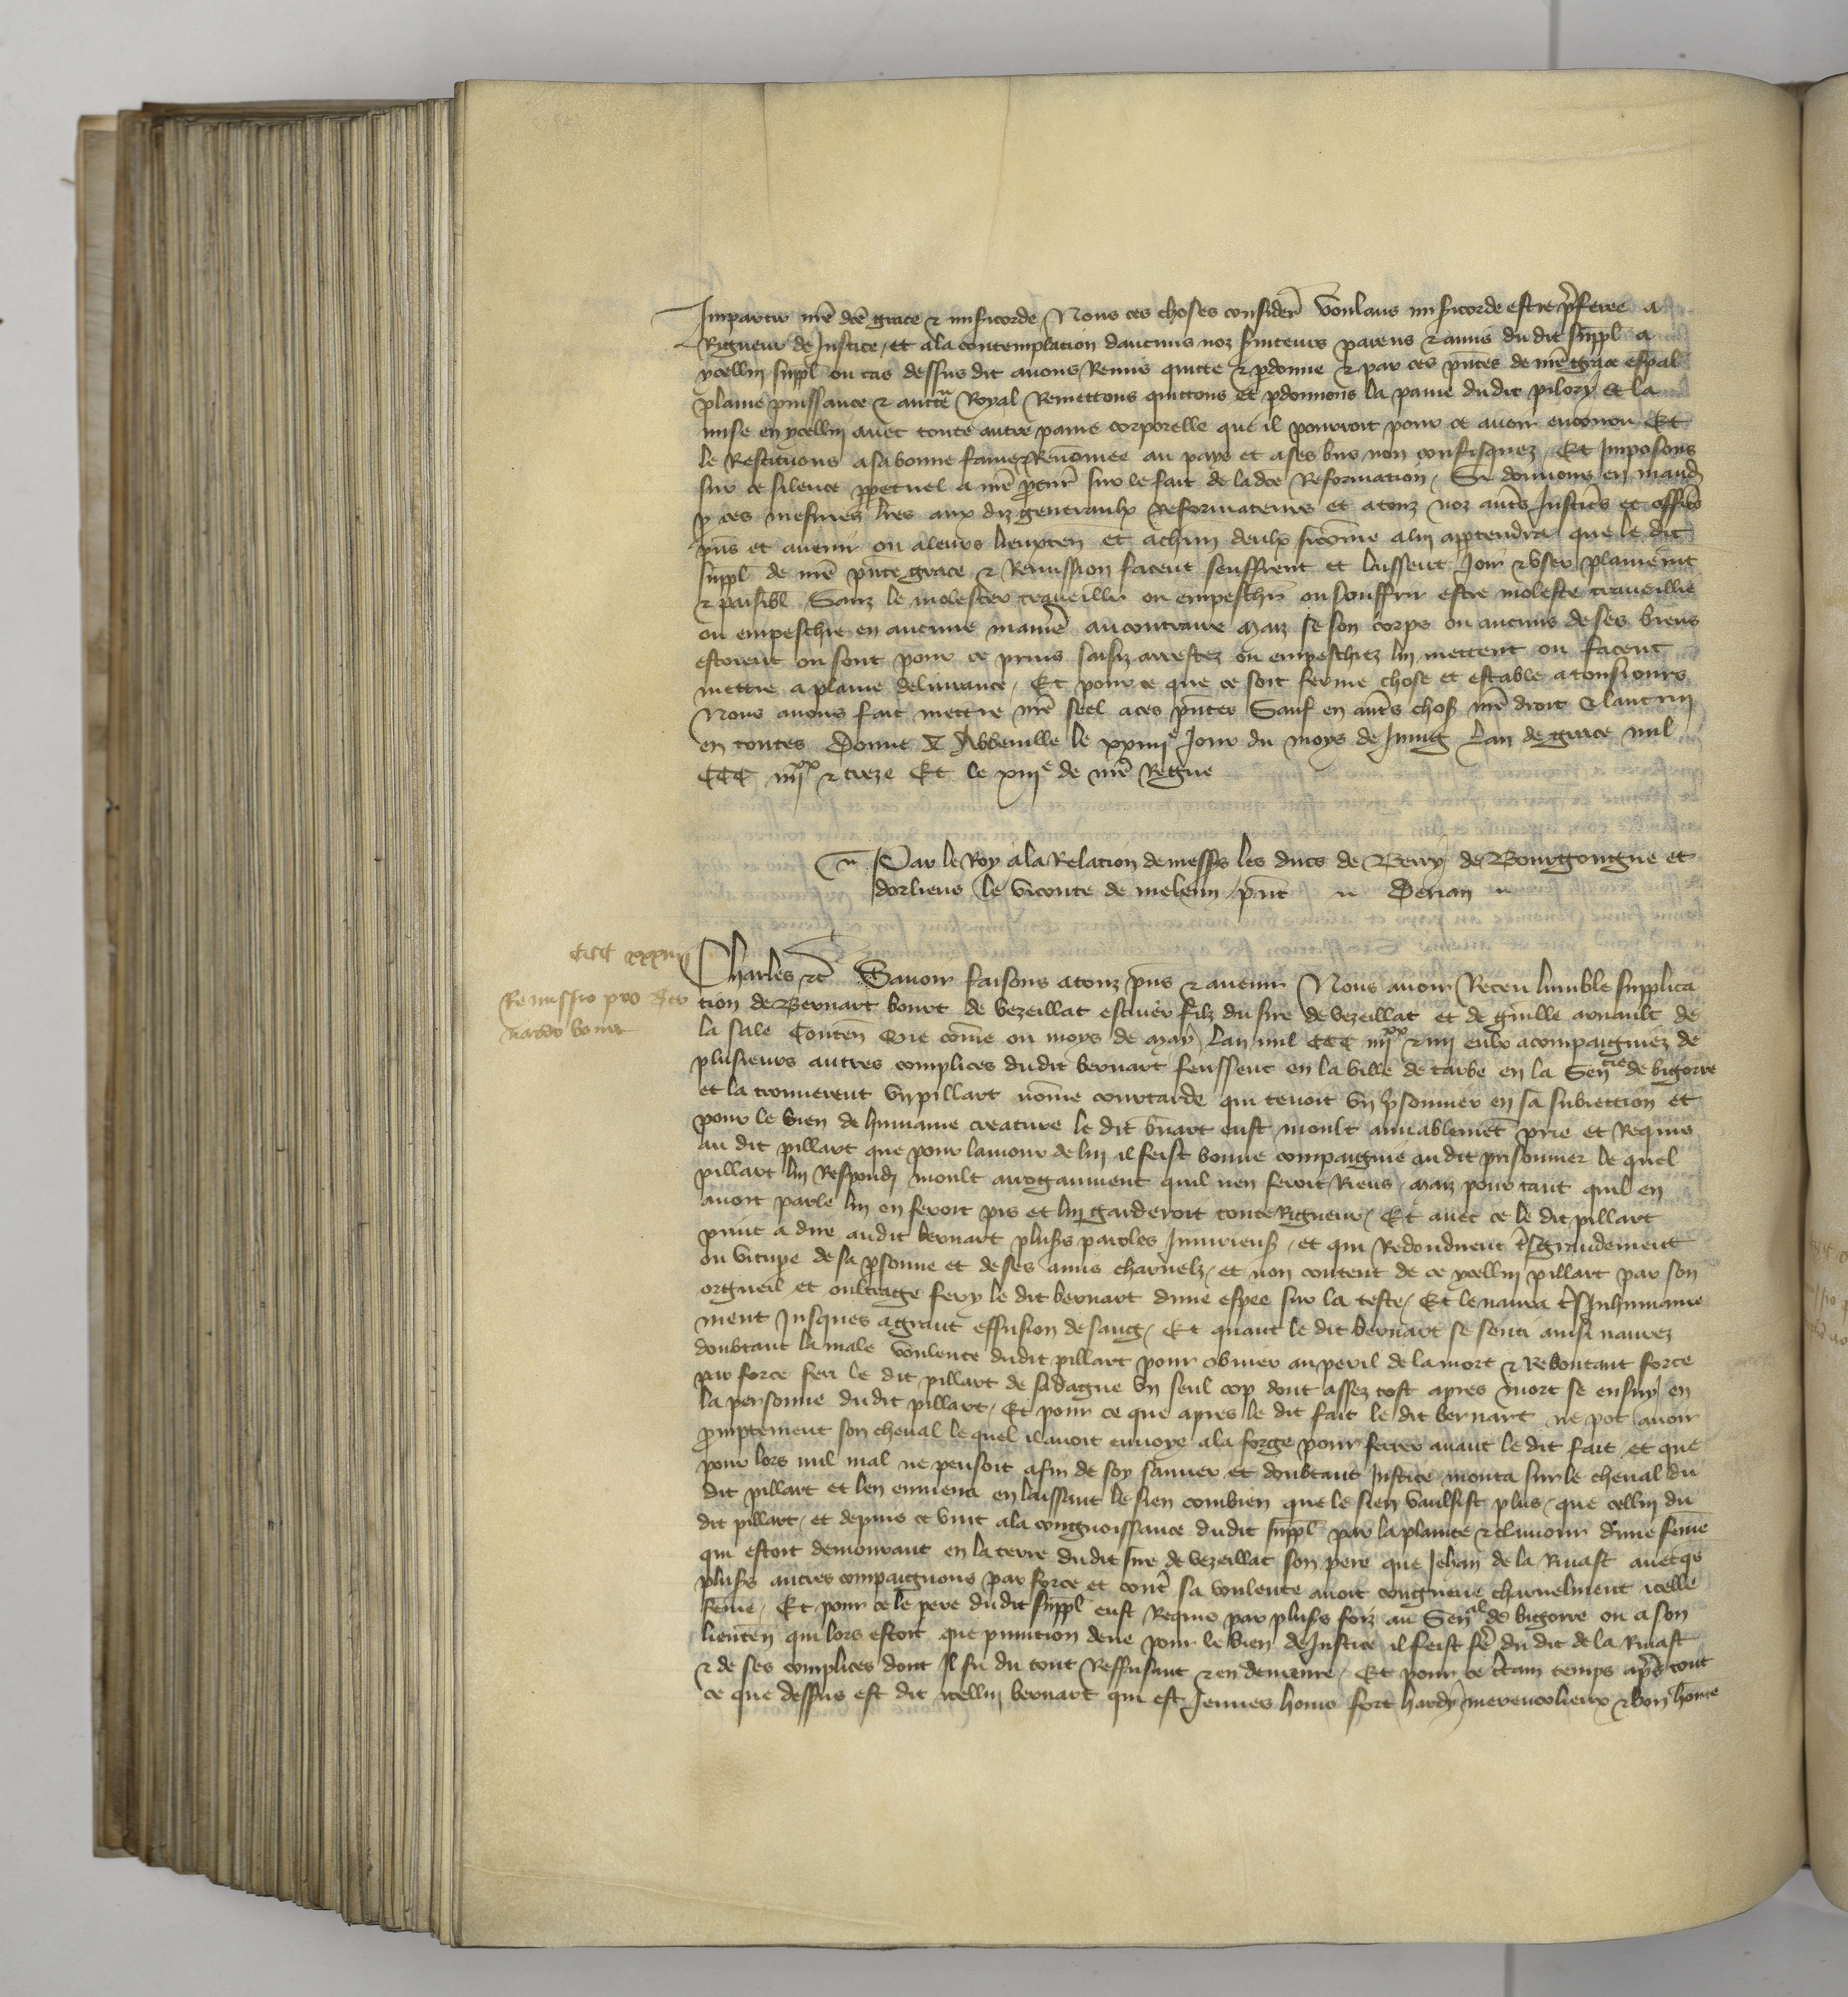 Impartir nr̃e dc̃e grace & mis̃icorde Nous ces choses consider̃ voulans mis̃icorde estre p̃feree a
Rigueur de Justice / et ala contemplacion daucuns noz s̃uiteurs parens & amis du dit suppl̃ a
ycellui suppl̃ ou cas dessus dit auons Remis quitte & p̱donne & par ces p̃ntes de nr̃e grace esp̃al
plaine puissance & aucto͛te Royal Remettons quittons et p̱donnons la paine dudit pilory et la
mise en ycellui auec toute autre paine corporelle que il pourroit pour ce auoir encouru Et
le Restituons asabonne fame & Renom̃ee au pays et ases bñs non confisquez / Et Imposons
sur ce silence p̱petuel a nr̃e p̱cur̃ sur le fait de lad̃ce Reformacion / Si donnons en mand̃
p̱ ces mesmes lr̃es aux diz gen̄eraulx Reformateurs et atouz noz aut̃s Justic̃s et offic̃s
p̃ns et auenir ou aleurs lieuxten̄ et achũn deulx sicom̃e alui app̱tendra que le dit
suppl̃ de nr̃e p̃nte grace & Remission facent seuffrent et laissent Joir & vser plainem̃t
& paisibl̃ Sanz le molester traueillier ou empesch̃r ou souffrir estre moleste traueillie
ou empeschie en aucune manier̃ aucontraire maiz se son corps ou aucuns de ses biens
estoient ou sont pour ce prins saisiz arrestez ou empeschiez lui mettent ou facent
mettre a plaine deliurance / Et pour ce que ce soit ferme chose et estable atousiours
Nous auons fait mettre nr̃e seel aces p̃ntes Sauf en aut̃s chos̃ nr̃e droit & lautrui
en toutes Donne A Abbeuille le xxiiiie Jour du moys de Juing Lan de grace mil
CCC iiiixx & treze Et le xiiie de nr̃e Regne
Par le Roy ala Relacion de mess̃s les ducs de Berry de Bourgoingne et
dorliens le viconte de meleun p̃nt Derian
CCC xxxiiii
Remissio pro Ber
nardo bourt
Charles &c̃ Sauoir faisons atouz p̃ns & auenir Nous auoir Receu lumble supplica
tion de Bernart bourt de vezeillat escuier filz du sire de vezeillat et de guill̃e arnault de
la sale Conten̄ Que com̃e ou moys de may Lan mil CCC iiiixx & iiii eulx acompaigniez de
plusieurs autres complices dudit bernart feussent en la ville de tarbe en la Sen̄cie de bigorre
et la trouuerent vn pillart nom̃e courtarde qui tenoit vn p̃sonnier en sa subiection et
pour le bien de humaine creature le dit b̃nart eust moult amiablem̃t prie et Requis
au dit pillart que pour lamour de lui il feist bonne compaignie au dit prisonnier le quel
pillart lui Respondi moult arroganment quil nen feroit Riens / maiz pour tant quil en
auoit parle lui en feroit pis et lui garderoit toute Rigueur / Et auec ce le dit pillart
print a dire audit bernart plus̃s paroles Iniurieus̃ / et qui Redonduent tr̃sgrandement
ou vitupe de sa p̱sonne et de ses amis charnelz / et non content de ce ycellui pillart par son
orgueil et oultrage fery le dit bernart dune espee sur la teste / Et le naura tr̃s Inhumaine
ment Jusques agrant effusion de sang / Et quant le dit bernart se senti ainsi naurez
doubtant la male voulente dudit pillart pour obuier au peril de la mort & Reboutant force
par force feri le dit pillart de sadague vn seul cop dont assez tost apres mort se ensuy en
la personne dudit pillart / Et pour ce que apres le dit fait le dit bernart ne pot auoir
p̱mptement son cheual le quel il auoit enuoye ala forge pour ferrer auant le dit fait / et que
pour lors nul mal ne pensoit afin de soy sauuer et doubtant Justice monta sur le cheual du
dit pillart et len enmena en laissant le sien combien que le sien vaulsist plus / que cellui du
dit pillart / et depuis ce vint ala congnoissance dudit suppl̃ par la plainte & clamour dune fem̃e
qui estoit demourant en la terre dudit sire de vezeillat son pere que Jehan de la Riuast auecq̃s
plus̃s autres compaignons par force et cont̃ sa voulente auoit congneue charnelment icelle
fem̃e / Et pour ce le pere dudit suppl̃ eust Requis par plus̃s foiz au Sen̄al de bigorre ou a son
lieuten̄ qui lors estoit que punition deue pour le bien de Justice il feist fẽ du dit de la Riuast
& de ses complices dont Il fu du tout Reffusant & en demeure / Et pour ce c̃tain temps ap̃s tout
ce que dessus est dit icellui bernart qui est Jeunes homs fort hardy merencolieux & bon hom̃e